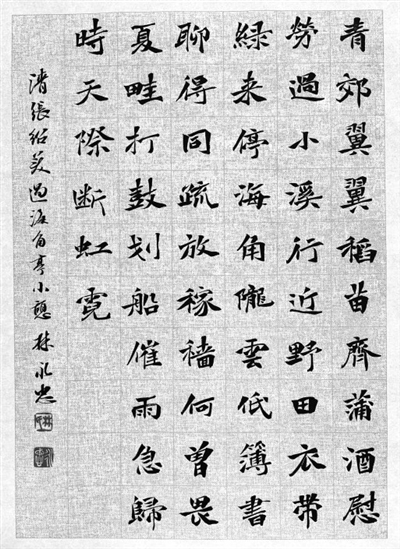 青郊翼翼稻苗齊蒲酒慰
勞過小溪行近野田衣帶
綠来停海角隴雲低簿書
聊得同疏放稼穡何曾畏
夏畦打鼓划船催雨急歸
時天際断虹霓
清張紹美過海角亭小憩 林